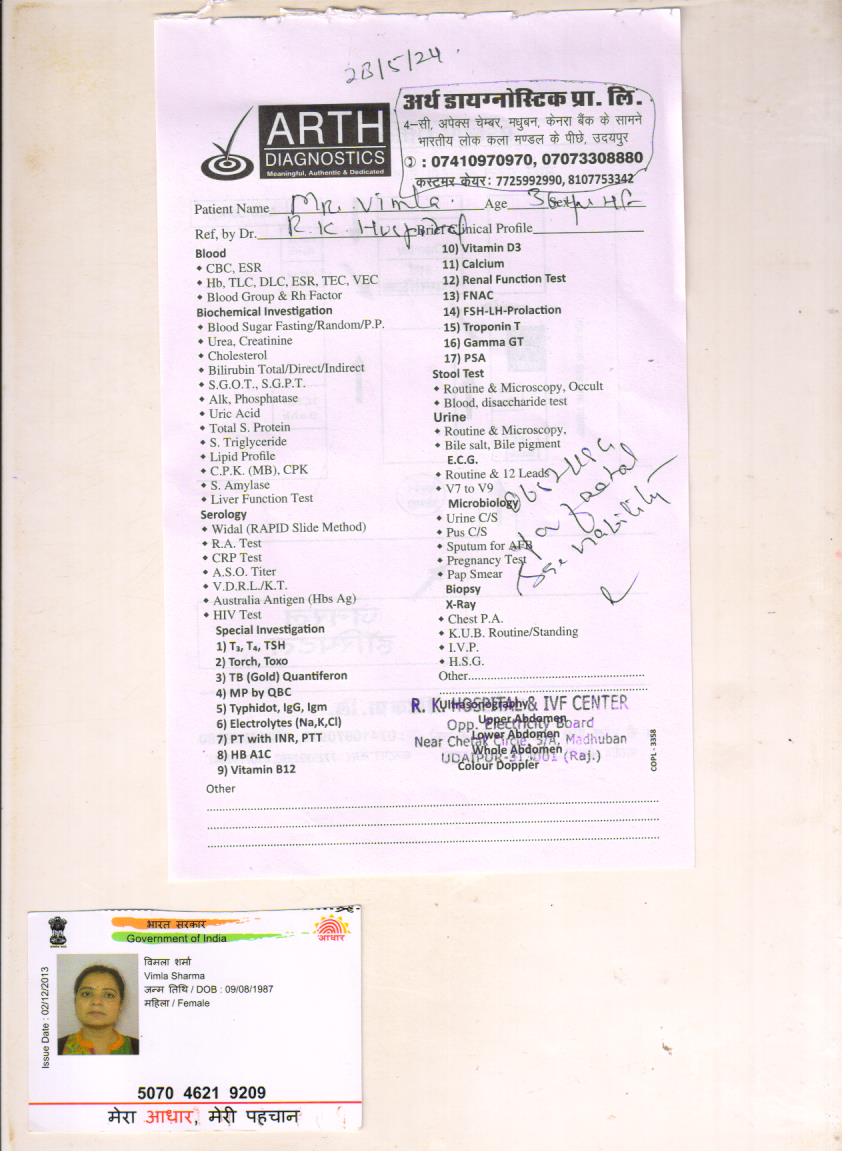 28/5/24
ARTH
DIAGNOSTICS
Meaningful, Authentic & Dedicated
अर्थ डायग्नोस्टिक प्रा. लि.
4–सी, अपेक्स चेम्बर, मधुबन, केनरा बैंक के सामने
भारतीय लोक कला मण्डल के पीछे, उदयपुर
: 07410970970, 07073308880
कस्टमर केयर: 7725992990, 8107753342
Patient Name Mr. Vimla Age 36 Sex
Ref, by Dr. R.K. Hospital Brief Clinical Profile
Blood
CBC, ESR
Hb, TLC, DLC, ESR, TEC, VEC
Blood Group & Rh Factor
Biochemical Investigation
Blood Sugar Fasting/Random/P.P.
Urea, Creatinine
Cholesterol
Bilirubin Total/Direct/Indirect
S.G.O.T., S.G.P.T.
Alk, Phosphatase
Uric Acid
Total S. Protein
S. Triglyceride
Lipid Profile
C.P.K. (MB), CPK
S. Amylase
Liver Function Test
Serology
Widal (RAPID Slide Method)
R.A. Test
CRP Test
A.S.O. Titer
V.D.R.L./K.T.
Australia Antigen (Hbs Ag)
HIV Test
Special Investigation
1) T₃, T₄, TSH
2) Torch, Toxo
3) TB (Gold) Quantiferon
4) MP by QBC
5) Typhidot, IgG, Igm
6) Electrolytes (Na,K,Cl)
7) PT with INR, PTT
8) HB A1C
9) Vitamin B12
10) Vitamin D3
11) Calcium
12) Renal Function Test
13) FNAC
14) FSH-LH-Prolaction
15) Troponin T
16) Gamma GT
17) PSA
Stool Test
Routine & Microscopy, Occult
Blood, disaccharide test
Urine
Routine & Microscopy,
Bile salt, Bile pigment
E.C.G.
Routine & 12 Leads
V7 to V9
Microbiology
Urine C/S
Pus C/S
Sputum for AFB
Pregnancy Test
Pap Smear
Biopsy
X-Ray
Chest P.A.
K.U.B. Routine/Standing
I.V.P.
H.S.G.
Other
for foetal
viability
Ultrasonography
Upper Abdomen
Lower Abdomen
Whole Abdomen
Colour Doppler
R. K. HOSPITAL & IVF CENTER
Opp. Electricity Board
Near Chetak Circle, 5/A, Madhuban
UDAIPUR-313001 (Raj.)
COPL - 3358
Other
भारत सरकार
Government of India
आधार
विमला शर्मा
Vimla Sharma
जन्म तिथि / DOB : 09/08/1987
महिला / Female
Issue Date : 02/12/2013
5070 4621 9209
मेरा आधार, मेरी पहचान